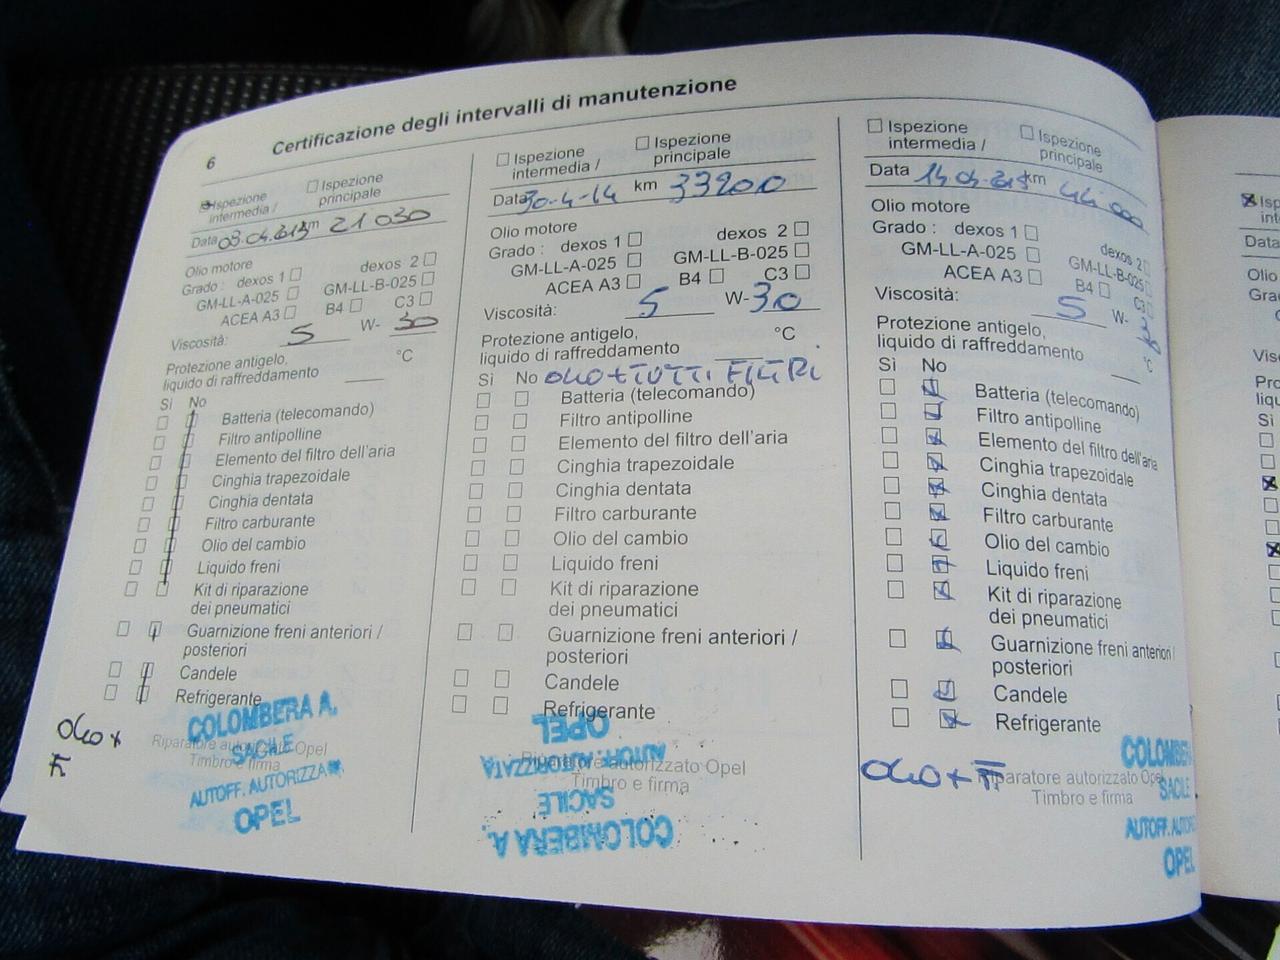 6 Certificazione degli intervalli di manutenzione
Ispezione intermedia /
Ispezione principale
Data 03.04.2013 km 21 030
Olio motore
Grado : dexos 1 dexos 2
GM-LL-A-025 GM-LL-B-025
ACEA A3 B4 C3
Viscosità: 5 W- 30
Protezione antigelo,
liquido di raffreddamento °C
Sì No
Batteria (telecomando)
Filtro antipolline
Elemento del filtro dell'aria
Cinghia trapezoidale
Cinghia dentata
Filtro carburante
Olio del cambio
Liquido freni
Kit di riparazione
dei pneumatici
Guarnizione freni anteriori /
posteriori
Candele
Refrigerante
OLIO +
Riparatore autorizzato Opel
Timbro e firma
COLOMBERA A.
SACILE
AUTOFF. AUTORIZZATA
OPEL
Ispezione intermedia /
Ispezione principale
Data 30-4-14 km 33200
Olio motore
Grado : dexos 1 dexos 2
GM-LL-A-025 GM-LL-B-025
ACEA A3 B4 C3
Viscosità: 5 W- 30
Protezione antigelo,
liquido di raffreddamento °C
Sì No OLIO + TUTTI FILTRI
Batteria (telecomando)
Filtro antipolline
Elemento del filtro dell'aria
Cinghia trapezoidale
Cinghia dentata
Filtro carburante
Olio del cambio
Liquido freni
Kit di riparazione
dei pneumatici
Guarnizione freni anteriori /
posteriori
Candele
Refrigerante
Riparatore autorizzato Opel
Timbro e firma
COLOMBERA A.
SACILE
AUTOFF. AUTORIZZATA
OPEL
Ispezione intermedia /
Ispezione principale
Data km 44 000
Olio motore
Grado : dexos 1 dexos 2
GM-LL-A-025 GM-LL-B-025
ACEA A3 B4 C3
Viscosità: 5 W- 30
Protezione antigelo,
liquido di raffreddamento °C
Sì No
Batteria (telecomando)
Filtro antipolline
Elemento del filtro dell'aria
Cinghia trapezoidale
Cinghia dentata
Filtro carburante
Olio del cambio
Liquido freni
Kit di riparazione
dei pneumatici
Guarnizione freni anteriori /
posteriori
Candele
Refrigerante
OLIO +
Riparatore autorizzato Opel
Timbro e firma
COLOMBERA
SACILE
AUTOFF. AUTOR
OPEL
Data
Olio
Sì